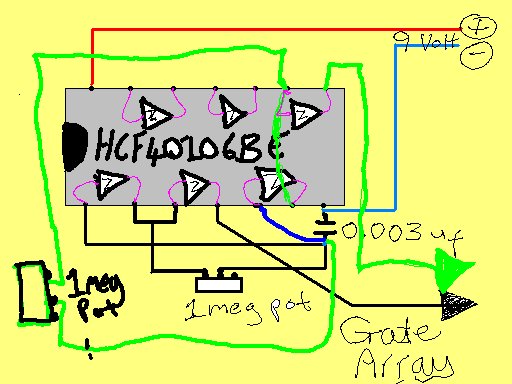 +
9 Volt -
HCF40106BE
0.003 uf
1 meg
pot
1 meg pot
Gate
Array